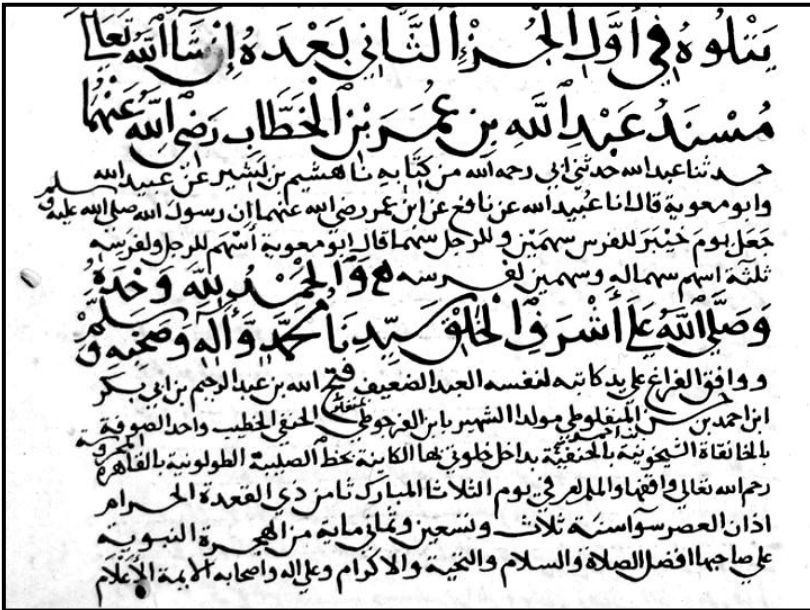 يَتْلُوهُ فِي أَوَّلِ الْجُزْءِ الثَّانِي بَعْدَهُ إِنْ شَاءَ اللَّهُ تَعَالَى
مُسْنَدُ عَبْدِ اللَّهِ بْنِ عُمَرَ بْنِ الْخَطَّابِ رَضِيَ اللَّهُ عَنْهُمَا
حدثنا عبد الله حدثني ابي رحمه الله من كتابه نا هشيم بن بشير عن عبيد الله
وابو معوية قال انا عبيد الله عن نافع عن ابن عمر رضي الله عنهما ان رسول الله صلى الله عليه وسلم
جعل يوم خيبر للفرس سهمين وللرجل سهما قال ابو معوية اسهم للرجل ولفرسه
ثلثة اسهم سهما له وسهمين لفرسه وَالْحَمْدُ لِلَّهِ وَحْدَهُ
وَصَلَّى اللَّهُ عَلَى أَشْرَفِ الْخَلْقِ سَيِّدِنَا مُحَمَّدٍ وَآلِهِ وَصَحْبِهِ وَسَلَّمَ
ووافق الفراغ على يد كاتبه لنفسه العبد الضعيف فتح الله بن عبد الرحيم بن ابي بكر
ابن احمد بن حسن المنفلوطي مولدا الشهير بابن الفرجوطي الحنفي الخطيب واحد الصوفة
بالخانقاة الشيخونية بالحنفية بداخل خلوتي بها الكاينة بخط الصليبة الطولونية بالقاهرة المحروسة
رحم الله تعالى واقفها في يوم الثلاثا المبارك ثامن ذي القعدة الحرام
اذان العصر سوا سنة ثلاث وتسعين وثماني ماية من الهجرة النبوية
على صاحبها افضل الصلاة والسلام والتحية والاكرام وعلى اله واصحابه الايمة الاعلام